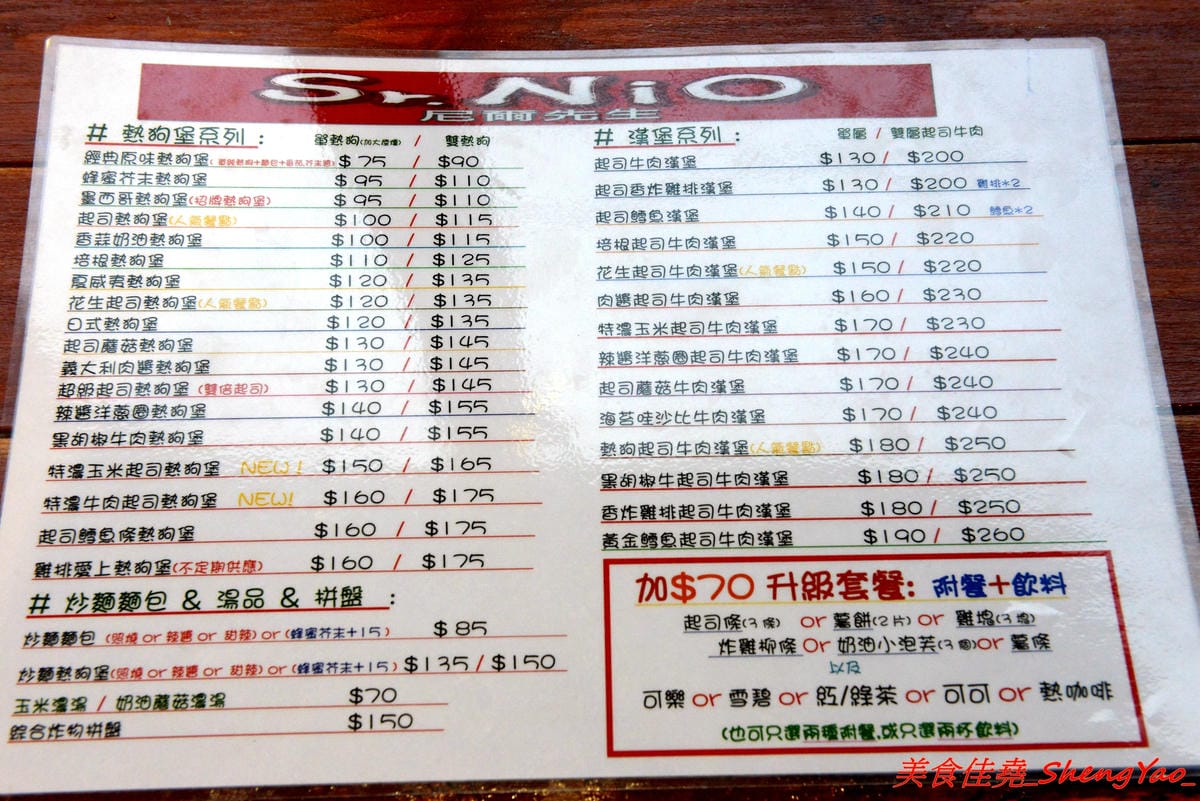 Sr. NiO
尼爾先生
# 熱狗堡系列： 單熱狗(加大煙燻) / 雙熱狗
經典原味熱狗堡(單純熱狗+麵包+番茄.芥末醬) $75 / $90
蜂蜜芥末熱狗堡 $95 / $110
墨西哥熱狗堡(招牌熱狗堡) $95 / $110
起司熱狗堡(人氣餐點) $100 / $115
香蒜奶油熱狗堡 $100 / $115
培根熱狗堡 $110 / $125
夏威夷熱狗堡 $120 / $135
花生起司熱狗堡(人氣餐點) $120 / $135
日式熱狗堡 $120 / $135
起司蘑菇熱狗堡 $130 / $145
義大利肉醬熱狗堡 $130 / $145
超級起司熱狗堡(雙倍起司) $130 / $145
辣醬洋蔥圈熱狗堡 $140 / $155
黑胡椒牛肉熱狗堡 $140 / $155
特濃玉米起司熱狗堡 NEW! $150 / $165
特濃牛肉起司熱狗堡 NEW! $160 / $175
起司鱈魚條熱狗堡 $160 / $175
雞排愛上熱狗堡(不定期供應) $160 / $175
# 炒麵麵包 & 湯品 & 拼盤：
炒麵麵包 (照燒 or 辣醬 or 甜辣) or (蜂蜜芥末+15) $85
炒麵熱狗堡(照燒 or 辣醬 or 甜辣) or (蜂蜜芥末+15) $135/$150
玉米濃湯 / 奶油蘑菇濃湯 $70
綜合炸物拼盤 $150
# 漢堡系列： 單層 / 雙層起司牛肉
起司牛肉漢堡 $130/ $200
起司香炸雞排漢堡 $130/ $200 雞排*2
起司鱈魚漢堡 $140/ $210 鱈魚*2
培根起司牛肉漢堡 $150/ $220
花生起司牛肉漢堡(人氣餐點) $150/ $220
肉醬起司牛肉漢堡 $160/ $230
特濃玉米起司牛肉漢堡 $170/ $230
辣醬洋蔥圈起司牛肉漢堡 $170/ $240
起司蘑菇牛肉漢堡 $170/ $240
海苔哇沙比牛肉漢堡 $170/ $240
熱狗起司牛肉漢堡(人氣餐點) $180/ $250
黑胡椒牛起司牛肉漢堡 $180/ $250
香炸雞排起司牛肉漢堡 $180/ $250
黃金鱈魚起司牛肉漢堡 $190/ $260
加$70 升級套餐: 附餐+飲料
起司條(3條) or 薯餅(2片) or 雞塊(3塊)
炸雞柳條 or 奶油小泡芙(3個) or 薯條
以及
可樂 or 雪碧 or 紅/綠茶 or 可可 or 熱咖啡
(也可只選兩種附餐.或只選兩杯飲料)
美食佳堯_ShengYao_